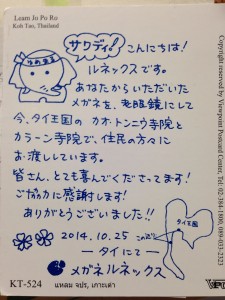 Leam Jo Po Ro
Koh Tao, Thailand
サワディ！
こんにちは！
ルネックスです。
あなたからいただいた
メガネを、老眼鏡にして
今、タイ王国の カオ・トンニウ寺院と
カラーン寺院で、住民の方々に
お渡ししています。
皆さん、とても喜んでくださってます！
ご協力に感謝します！
ありがとうございました!!
タイ王国
2014.10.25
このへん
ータイにてー
メガネルネックス
KT-524
แหลม จปร, เกาะเต่า
Copyright by Viewpoint Postcard Center, Tel: 02-384-1890, 089-033-2323